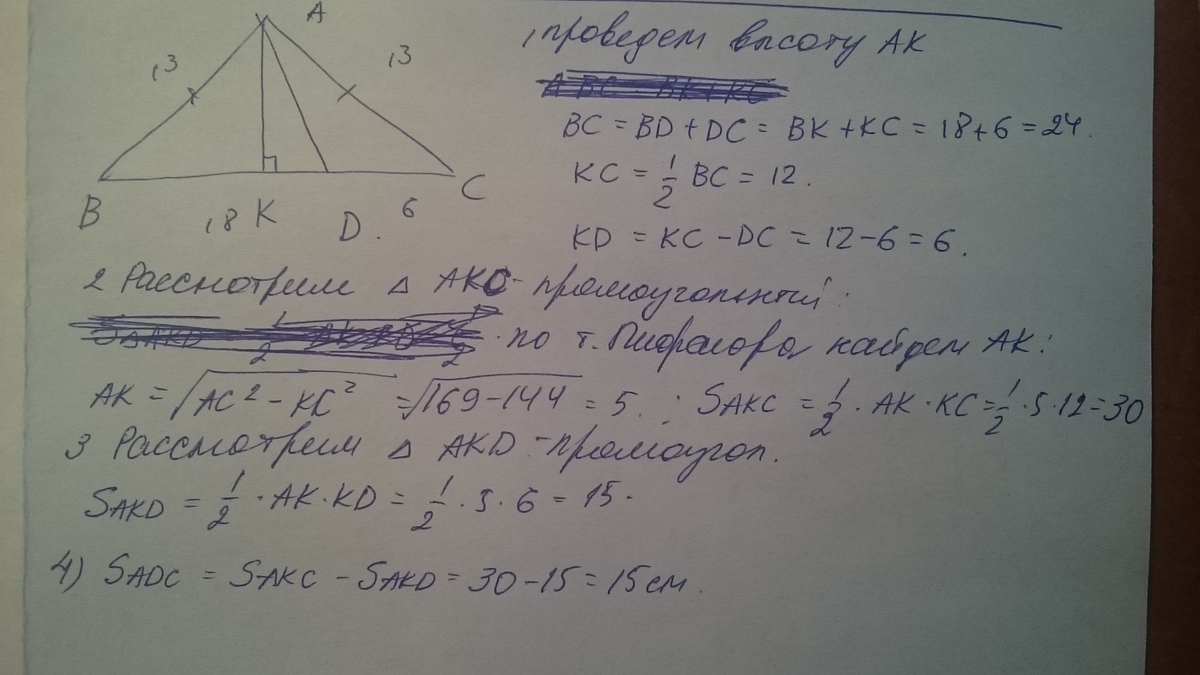 A
13
13
B
18
K
D.
6
C
1 проведем высоту AK
BC = BD + DC = BK + KC = 18+6 = 24.
KC = 1/2 BC = 12.
KD = KC - DC = 12 - 6 = 6.
2 Рассмотрим △ AKC - прямоугольный:
по т. Пифагора найдем AK:
AK = √AC² - KC² = √169-144 = 5. ; SAKC = 1/2 · AK · KC = 1/2 · 5 · 12 = 30
3 Рассмотрим △ AKD - прямоугол.
SAKD = 1/2 · AK · KD = 1/2 · 5 · 6 = 15.
4) SADC = SAKC - SAKD = 30 - 15 = 15 см.